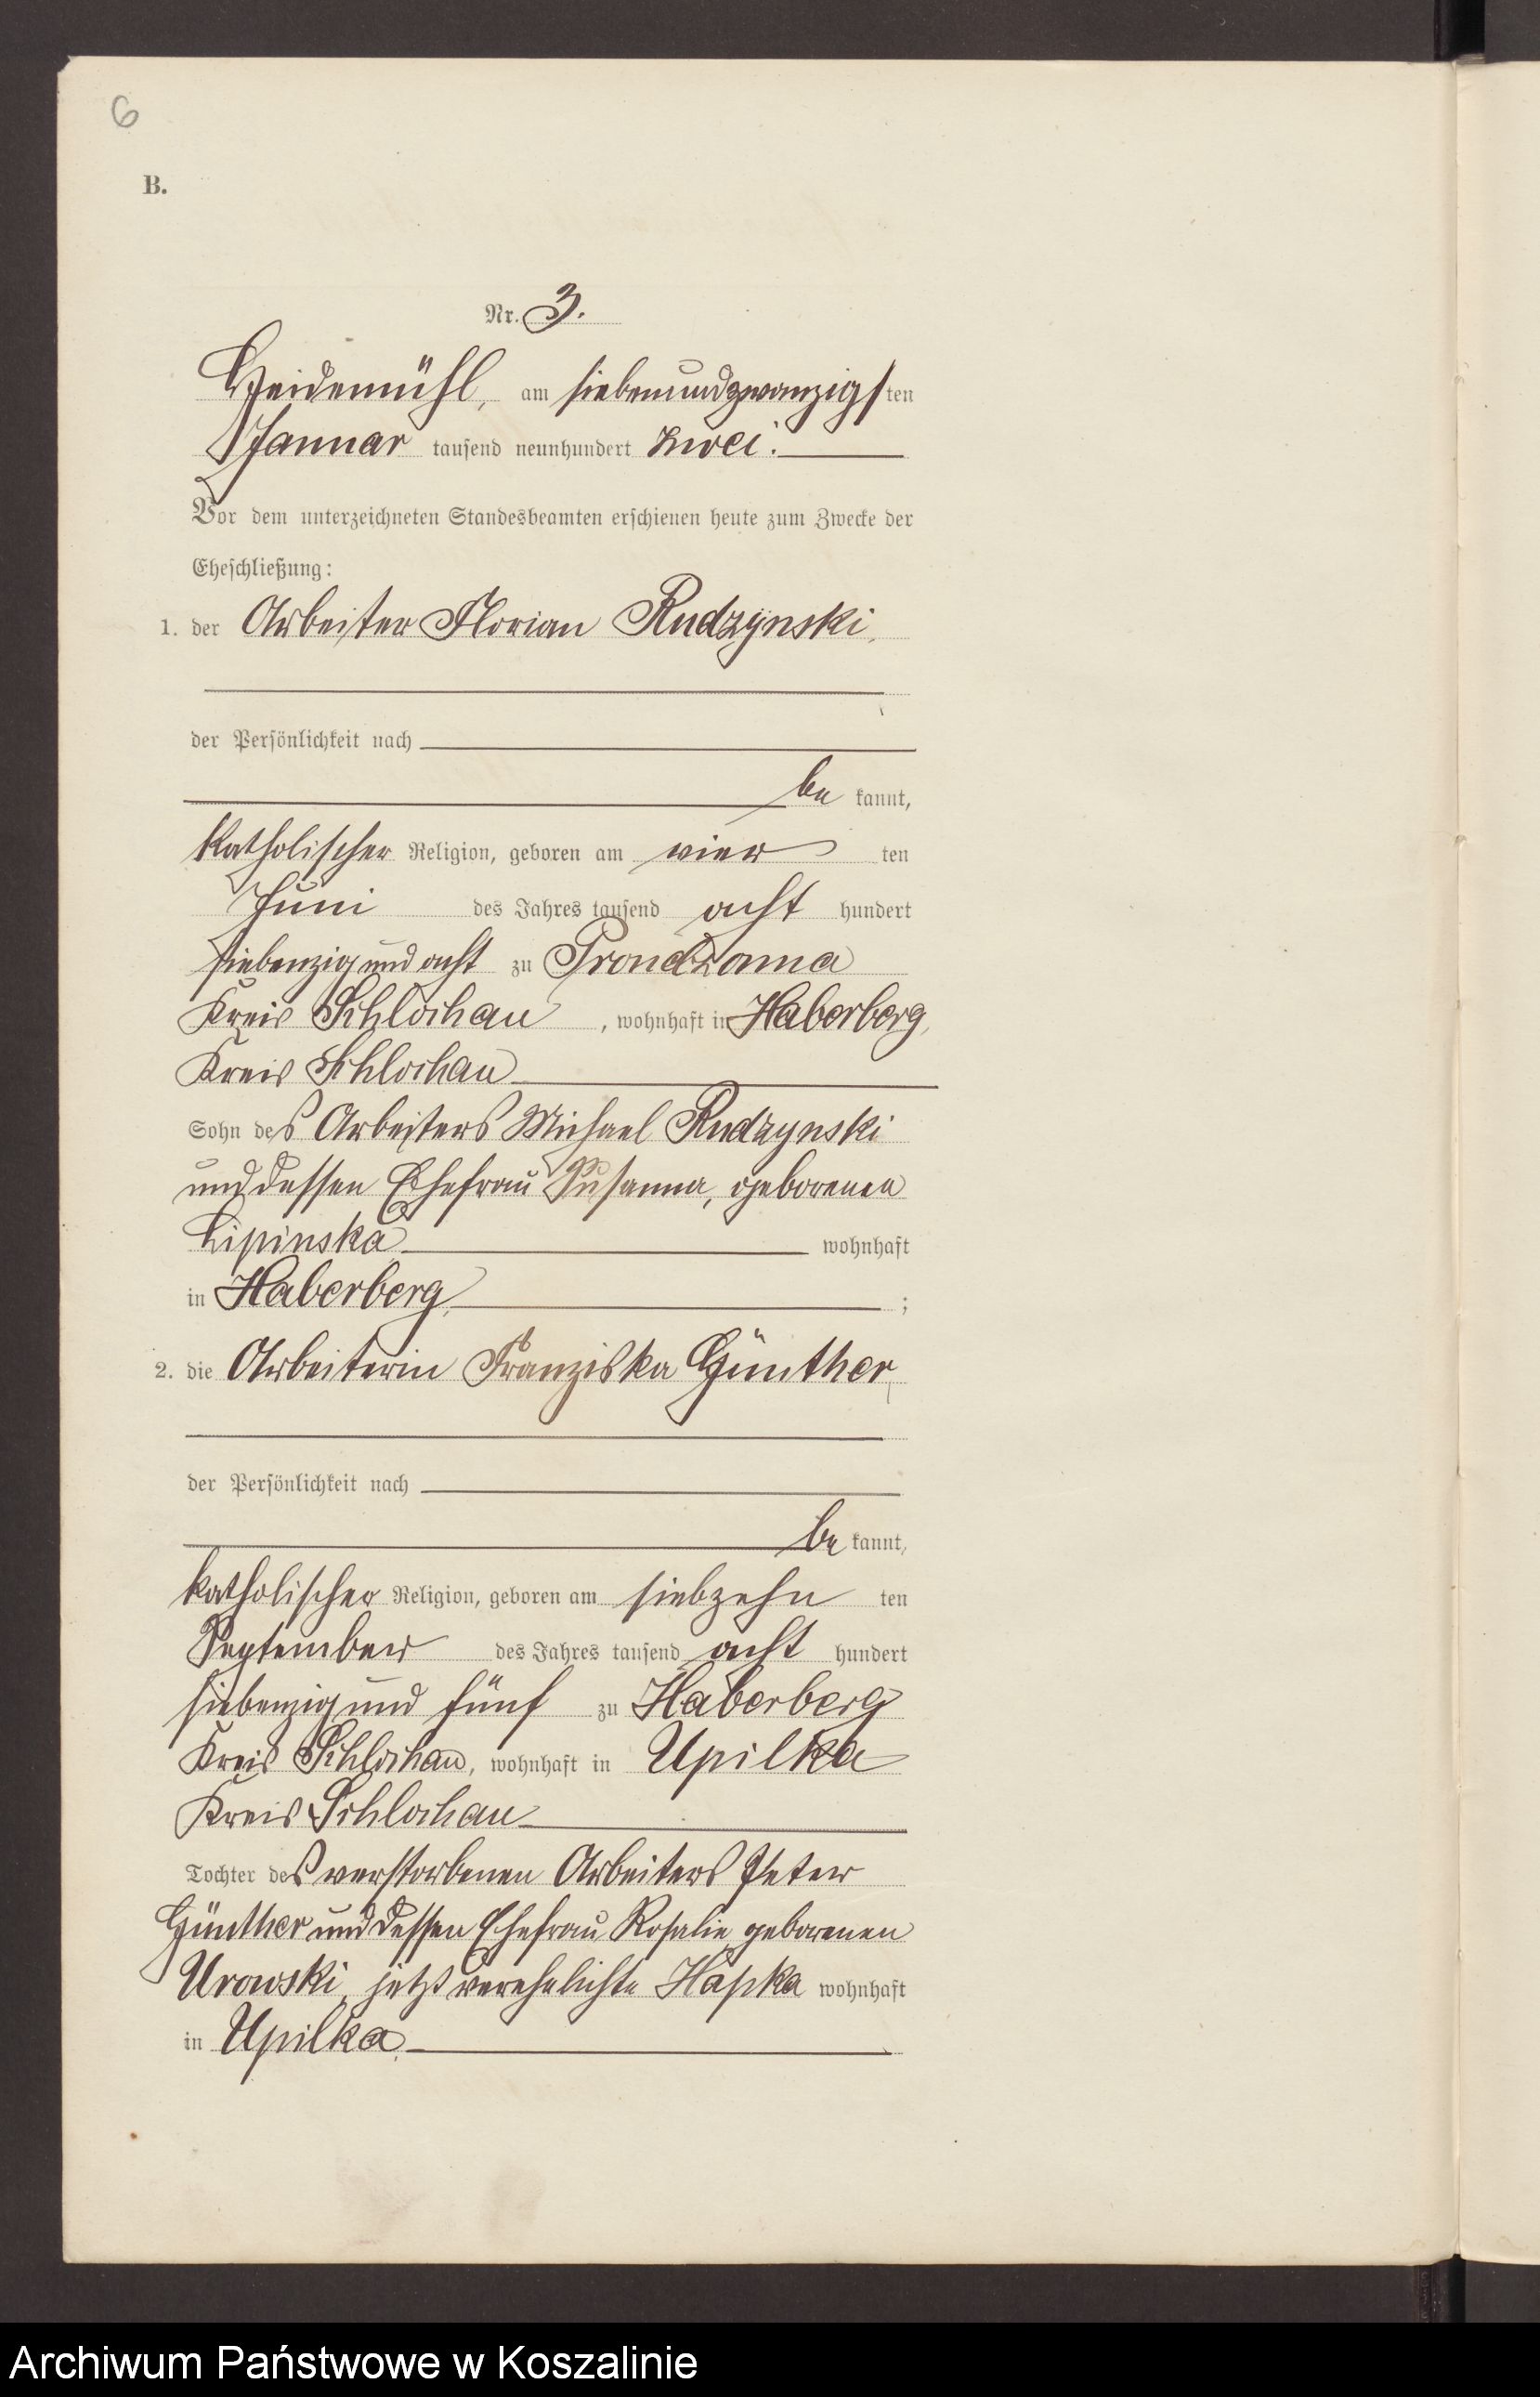 6
B.
Nr. 3.
Heidemühl, am siebenundzwanzigsten
Januar tausend neunhundert zwei.
Vor dem unterzeichneten Standesbeamten erschienen heute zum Zwecke der
Eheschließung:
1. der Arbeiter Florian Rudzynski,
der Persönlichkeit nach
be kannt,
katholischer Religion, geboren am vier ten
Juni des Jahres tausend acht hundert
siebenzig und acht zu Prondzonna
Kreis Schlochau, wohnhaft in Haberberg,
Kreis Schlochau
Sohn des Arbeiters Michael Rudzynski
und dessen Ehefrau Susanna, geborenen
Lipinska wohnhaft
in Haberberg, ;
2. die Arbeiterin Franziska Günther,
der Persönlichkeit nach
be kannt,
katholischer Religion, geboren am siebzehn ten
September des Jahres tausend acht hundert
siebenzig und fünf zu Haberberg
Kreis Schlochau, wohnhaft in Upilka
Kreis Schlochau
Tochter des verstorbenen Arbeiters Peter
Günther und dessen Ehefrau Rosalie geborenen
Urowski, jetzt verehelichte Hapka wohnhaft
in Upilka.
Archiwum Państwowe w Koszalinie